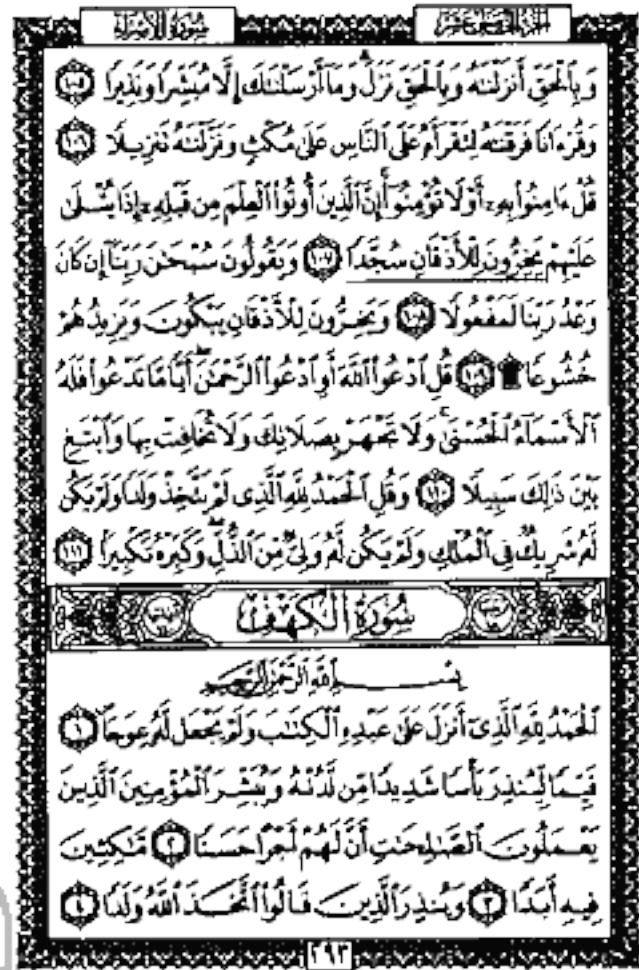 سُورَةُ الإِسْرَاءِ الجُزْءُ الخَامِسَ عَشَرَ
وَبِٱلْحَقِّ أَنزَلْنَٰهُ وَبِٱلْحَقِّ نَزَلَ ۗ وَمَآ أَرْسَلْنَٰكَ إِلَّا مُبَشِّرًا وَنَذِيرًا ١٠٥
وَقُرْءَانًا فَرَقْنَٰهُ لِتَقْرَأَهُۥ عَلَى ٱلنَّاسِ عَلَىٰ مُكْثٍ وَنَزَّلْنَٰهُ تَنزِيلًا ١٠٦
قُلْ ءَامِنُوا۟ بِهِۦٓ أَوْ لَا تُؤْمِنُوٓا۟ ۚ إِنَّ ٱلَّذِينَ أُوتُوا۟ ٱلْعِلْمَ مِن قَبْلِهِۦٓ إِذَا يُتْلَىٰ
عَلَيْهِمْ يَخِرُّونَ لِلْأَذْقَانِ سُجَّدًا ١٠٧ وَيَقُولُونَ سُبْحَٰنَ رَبِّنَآ إِن كَانَ
وَعْدُ رَبِّنَا لَمَفْعُولًا ١٠٨ وَيَخِرُّونَ لِلْأَذْقَانِ يَبْكُونَ وَيَزِيدُهُمْ
خُشُوعًا ۩ ١٠٩ قُلِ ٱدْعُوا۟ ٱللَّهَ أَوِ ٱدْعُوا۟ ٱلرَّحْمَٰنَ ۖ أَيًّا مَّا تَدْعُوا۟ فَلَهُ
ٱلْأَسْمَآءُ ٱلْحُسْنَىٰ ۚ وَلَا تَجْهَرْ بِصَلَاتِكَ وَلَا تُخَافِتْ بِهَا وَٱبْتَغِ
بَيْنَ ذَٰلِكَ سَبِيلًا ١١٠ وَقُلِ ٱلْحَمْدُ لِلَّهِ ٱلَّذِى لَمْ يَتَّخِذْ وَلَدًا وَلَمْ يَكُن
لَّهُۥ شَرِيكٌ فِى ٱلْمُلْكِ وَلَمْ يَكُن لَّهُۥ وَلِىٌّ مِّنَ ٱلذُّلِّ ۖ وَكَبِّرْهُ تَكْبِيرًۢا ١١١
سُورَةُ الكَهْفِ
بِسْمِ ٱللَّهِ ٱلرَّحْمَٰنِ ٱلرَّحِيمِ
ٱلْحَمْدُ لِلَّهِ ٱلَّذِىٓ أَنزَلَ عَلَىٰ عَبْدِهِ ٱلْكِتَٰبَ وَلَمْ يَجْعَل لَّهُۥ عِوَجَا ١
قَيِّمًا لِّيُنذِرَ بَأْسًا شَدِيدًا مِّن لَّدُنْهُ وَيُبَشِّرَ ٱلْمُؤْمِنِينَ ٱلَّذِينَ
يَعْمَلُونَ ٱلصَّٰلِحَٰتِ أَنَّ لَهُمْ أَجْرًا حَسَنًا ٢ مَّٰكِثِينَ
فِيهِ أَبَدًا ٣ وَيُنذِرَ ٱلَّذِينَ قَالُوا۟ ٱتَّخَذَ ٱللَّهُ وَلَدًا ٤
٢٩٣